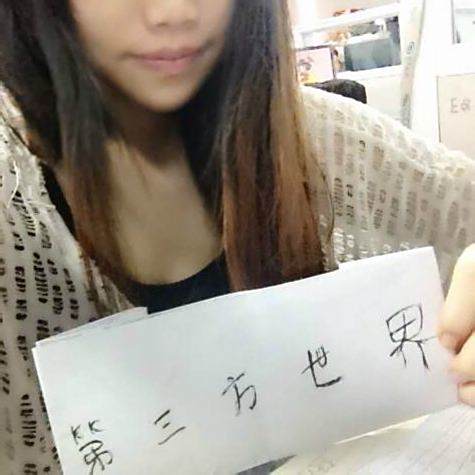 第三方世界